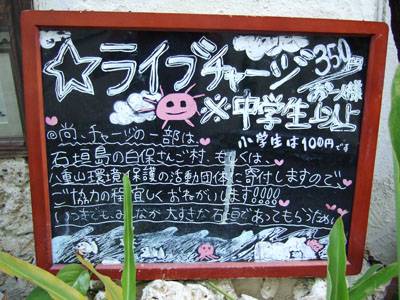 ☆ライブチャージ 350円
お一人様
※中学生以上
小学生は100円です
◎尚、チャージの一部は、
石垣島の白保さんご村、もしくは、
八重山環境保護の活動団体に寄付しますので
ご協力の程宜しくおねがいします!!!!
いつまでも、みんなが大すきな石垣であってもらうため